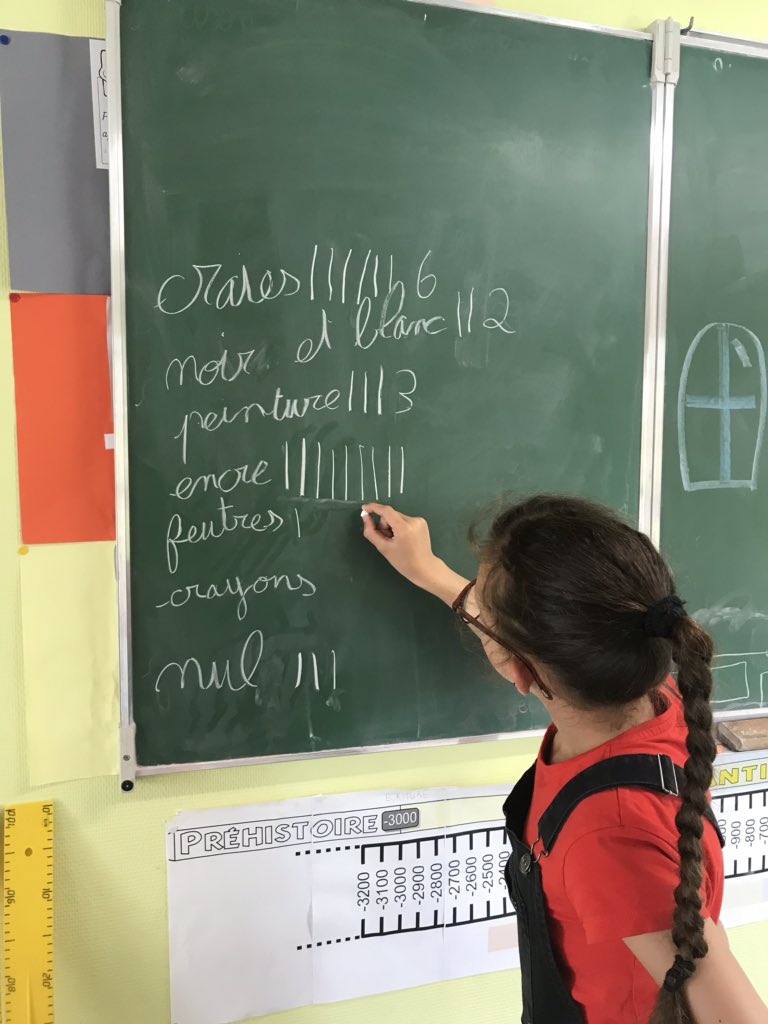 craies |||||| 6
noir et blanc || 2
peinture |||| 3
encre |||||||||
feutres |
crayons
nul |||
PRÉHISTOIRE -3000
-3200 -3100 -3000 -2900 -2800 -2700 -2600 -2500 -2400
ANTI
-900 -800 -700